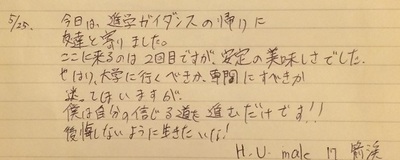 5/25. 今日は、進学ガイダンスの帰りに
友達と寄りました。
ここに来るのは2回目ですが、安定の美味しさでした。
やはり、大学に行くべきか、専門にすべきか
迷ってはいますが、
僕は自分の信じる道を進むだけです!!
後悔しないように生きたいな!
H.U. male 17 横浜